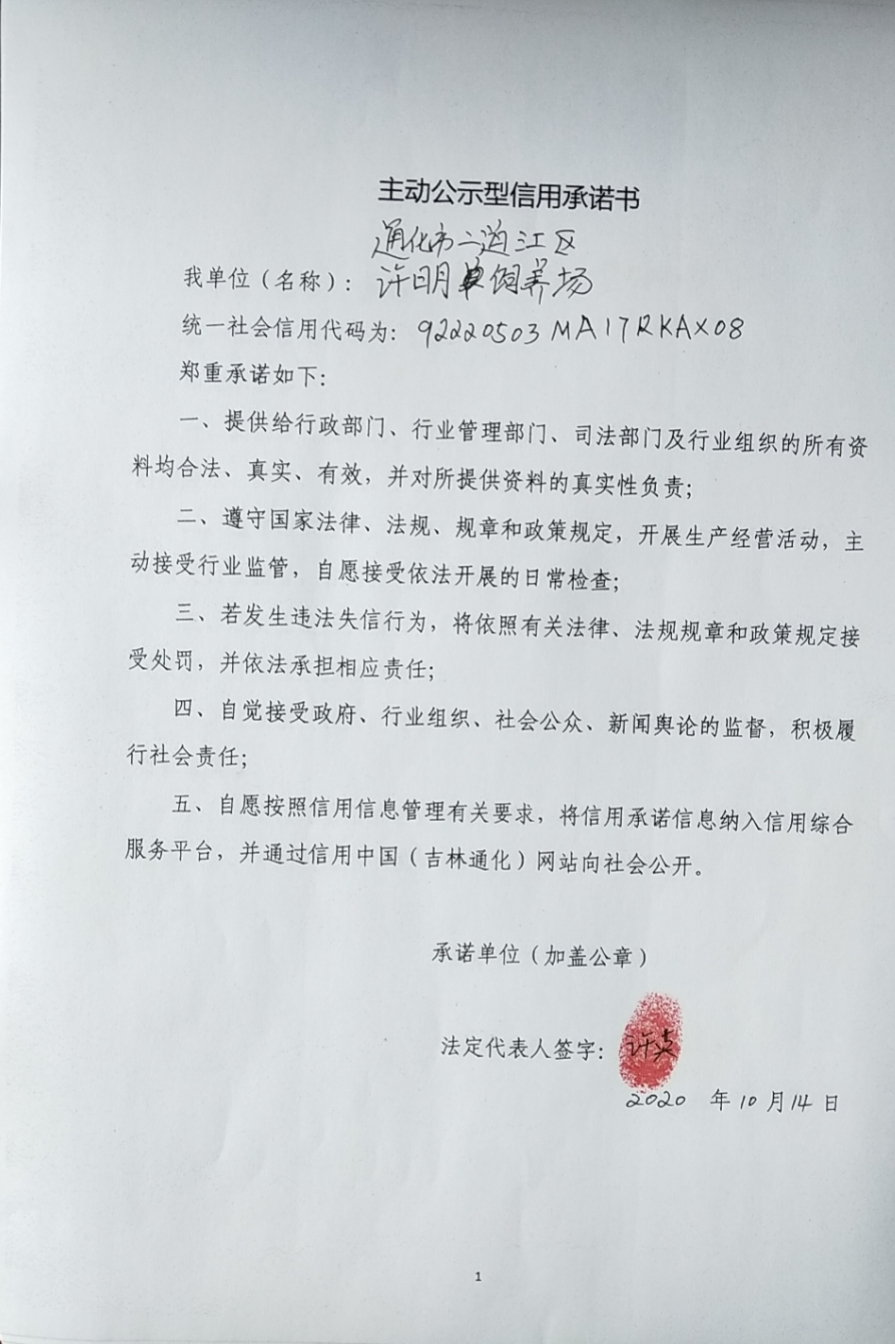 主动公示型信用承诺书
通化市二道江区
我单位（名称）：许明 饲养场
统一社会信用代码为：92220503MA17RKAX08
郑重承诺如下：
一、提供给行政部门、行业管理部门、司法部门及行业组织的所有资
料均合法、真实、有效，并对所提供资料的真实性负责；
二、遵守国家法律、法规、规章和政策规定，开展生产经营活动，主
动接受行业监管，自愿接受依法开展的日常检查；
三、若发生违法失信行为，将依照有关法律、法规规章和政策规定接
受处罚，并依法承担相应责任；
四、自觉接受政府、行业组织、社会公众、新闻舆论的监督，积极履
行社会责任；
五、自愿按照信用信息管理有关要求，将信用承诺信息纳入信用综合
服务平台，并通过信用中国（吉林通化）网站向社会公开。
承诺单位（加盖公章）
法定代表人签字：
2020 年10月14日
1